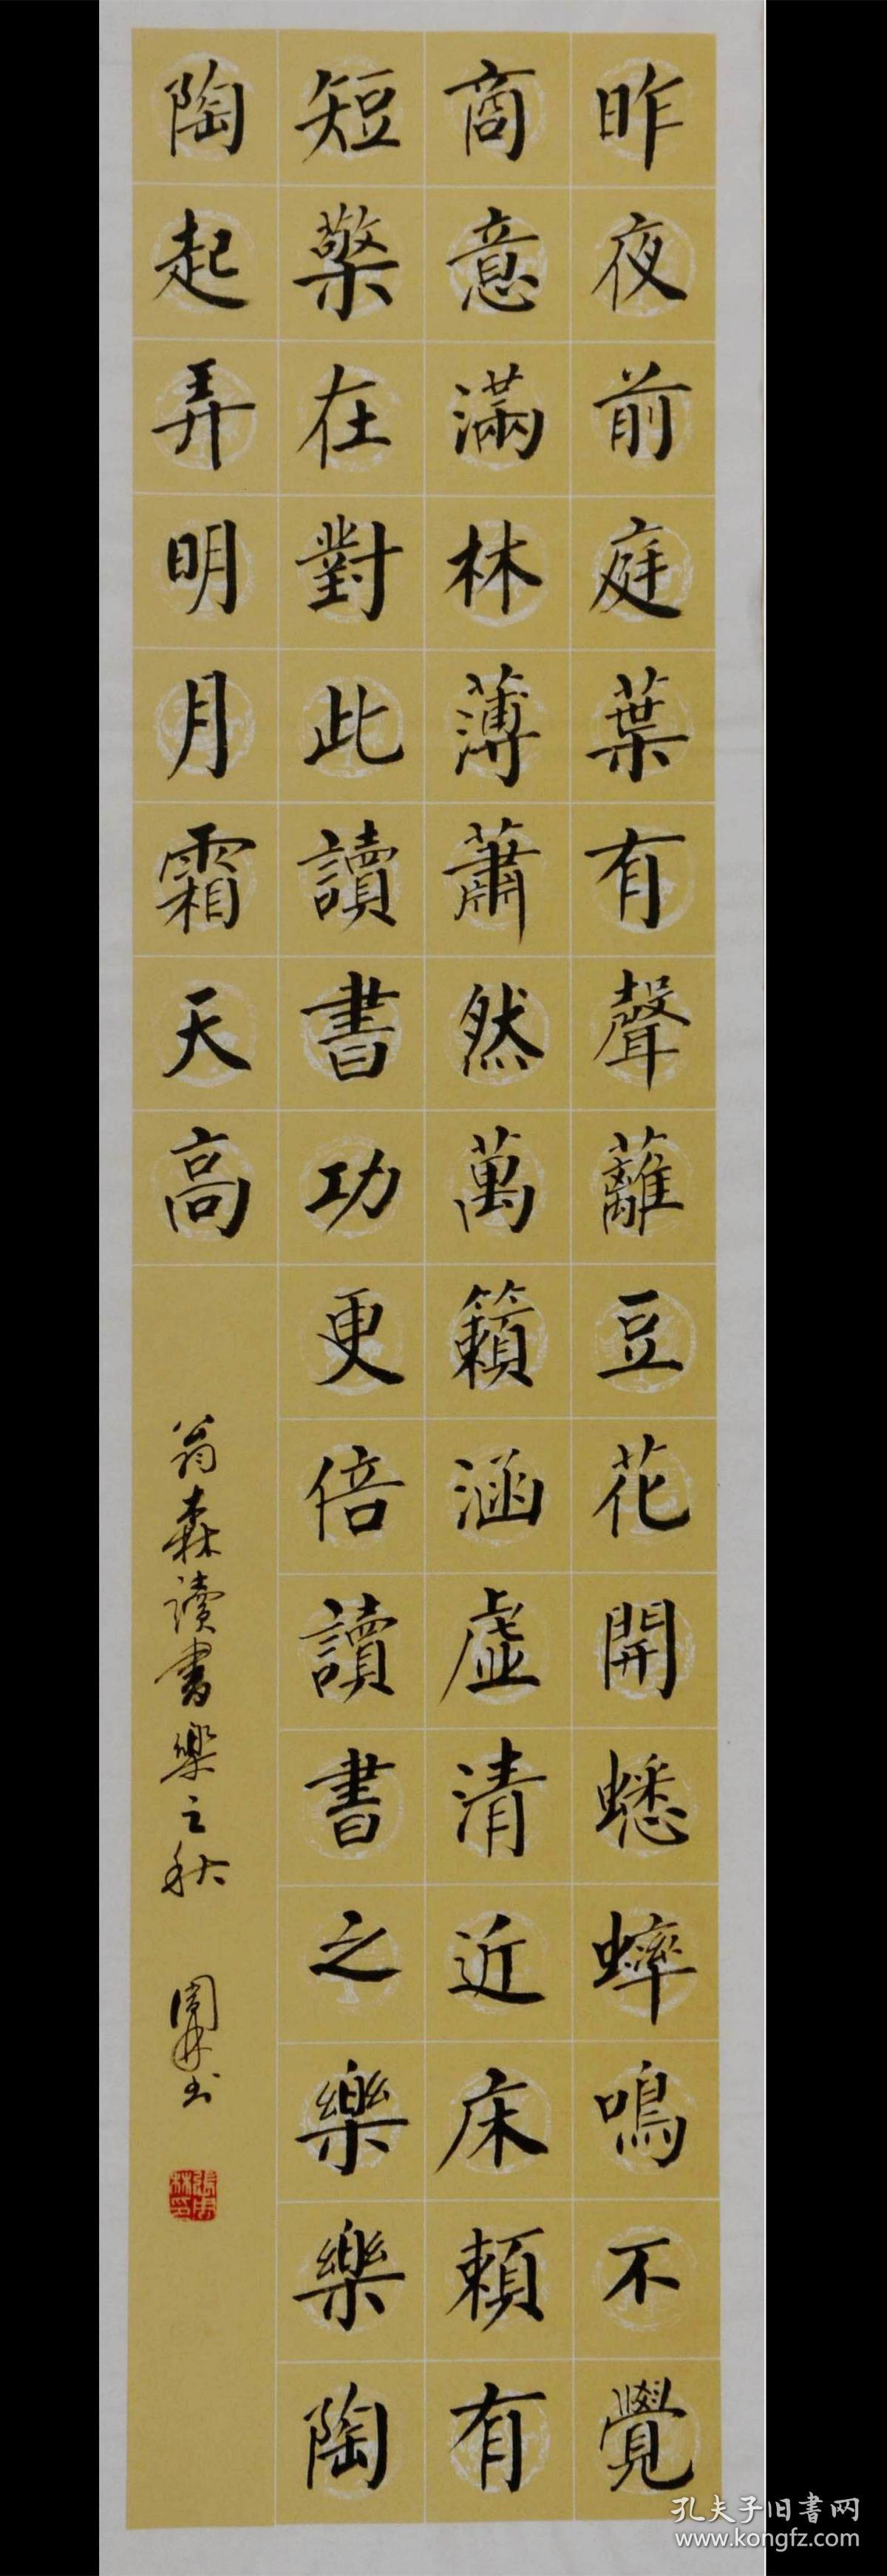 昨夜前庭葉有聲蘺豆花開蟋蟀鳴不覺
商意滿林薄蕭然萬籟涵虛清近床賴有
短檠在對此讀書功更倍讀書之樂樂陶
陶起弄明月霜天高
翁森讀書樂之秋
書
孔夫子旧書网
www.kongfz.com